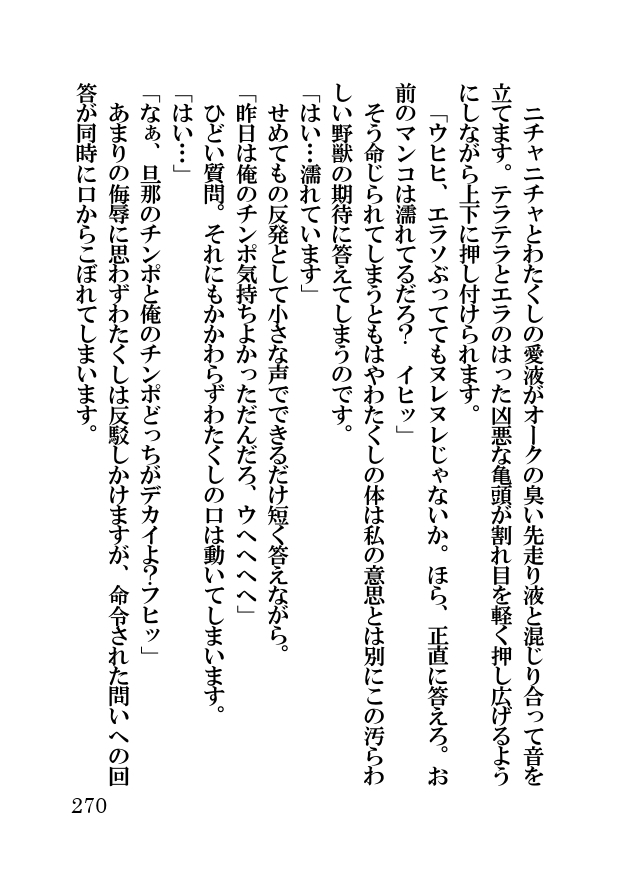 ニチャニチャとわたくしの愛液がオークの臭い先走り液と混じり合って音を
立てます。テラテラとエラのはった凶悪な亀頭が割れ目を軽く押し広げるよう
にしながら上下に押し付けられます。
「ウヒヒ、エラソぶっててもヌレヌレじゃないか。ほら、正直に答えろ。お
前のマンコは濡れてるだろ？　イヒッ」
そう命じられてしまうともはやわたくしの体は私の意思とは別にこの汚らわ
しい野獣の期待に答えてしまうのです。
「はい…濡れています」
せめてもの反発として小さな声でできるだけ短く答えながら。
「昨日は俺のチンポ気持ちよかっただんだろ、ウヘヘヘヘ」
ひどい質問。それにもかかわらずわたくしの口は動いてしまいます。
「はい…」
「なぁ、旦那のチンポと俺のチンポどっちがデカイよ？フヒッ」
あまりの侮辱に思わずわたくしは反駁しかけますが、命令された問いへの回
答が同時に口からこぼれてしまいます。
270